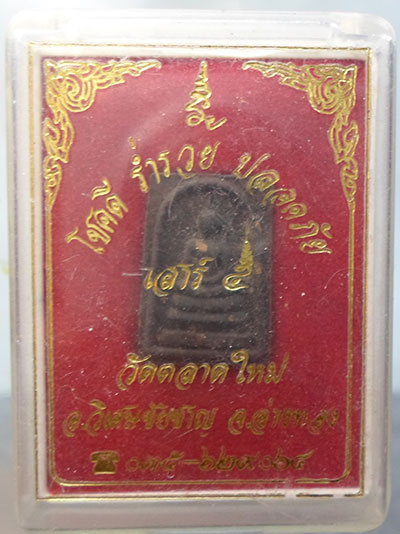 โชคดี ร่ำรวย ปลอดภัย
เสาร์ ๕
วัดตลาดใหม่
อ.วิเศษชัยชาญ จ.อ่างทอง
☎ ๐๓๕-๖๒๙๐๖๔